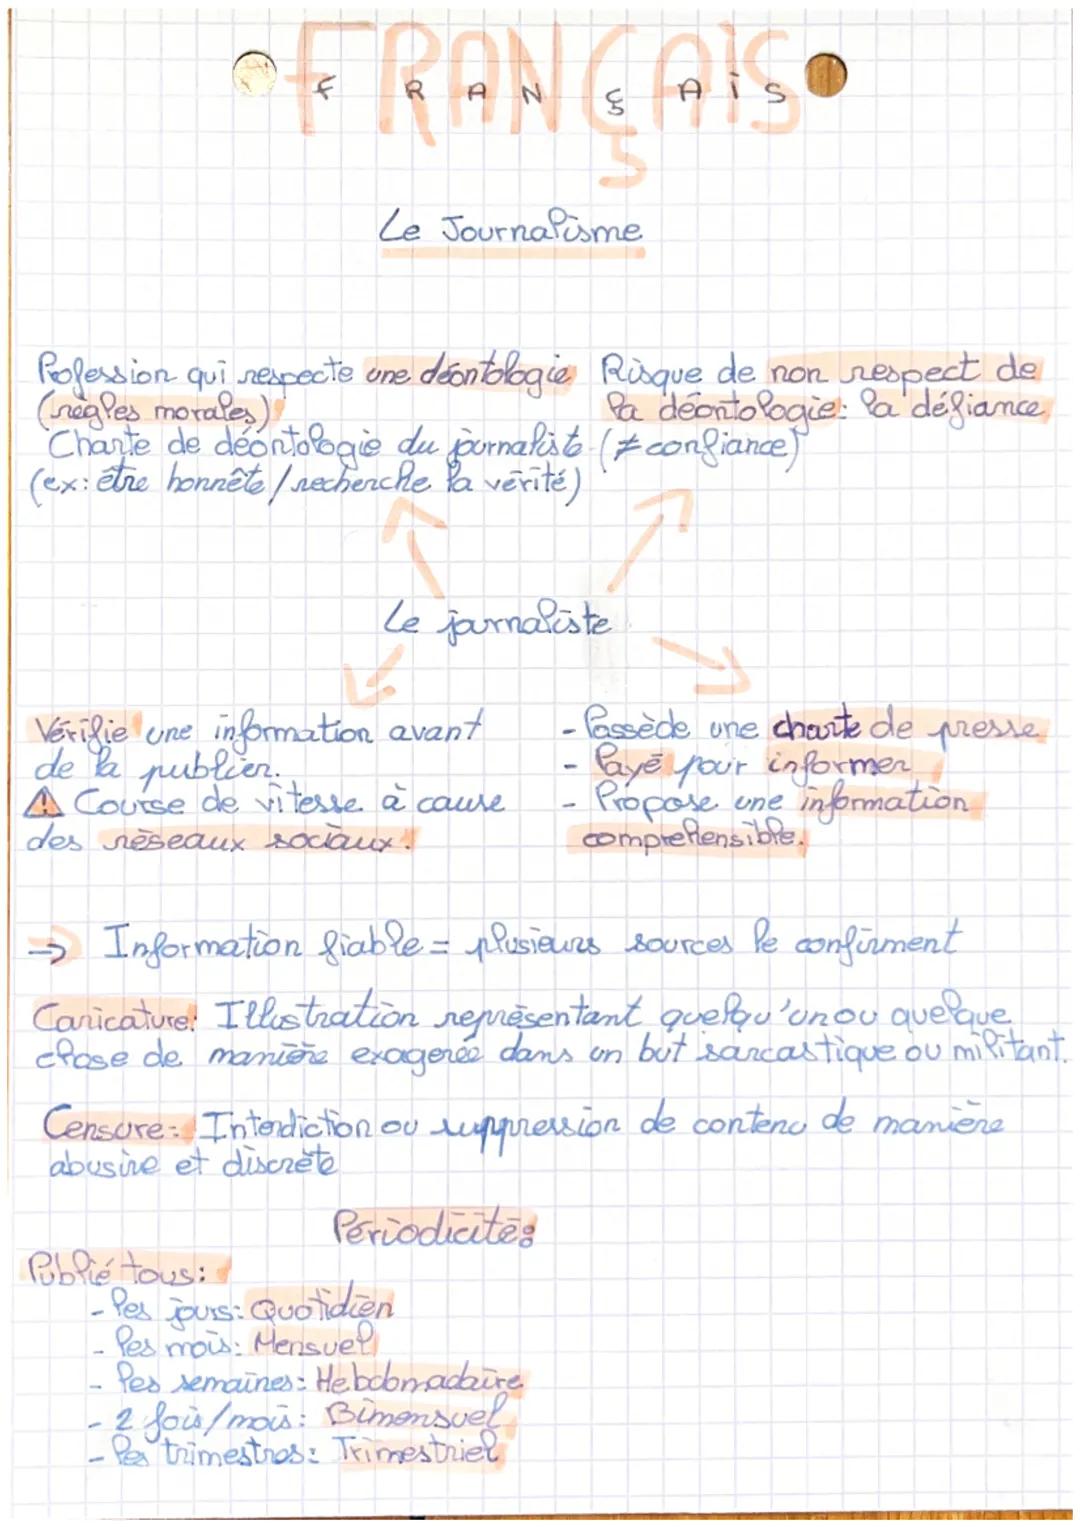 FRANÇAIS
F R A N Ç A i S
Le Journalisme
Profession qui respecte une déontologie
(règles morales)
Charte de déontologie du journaliste
(ex: être honnête / recherche la vérité)
Risque de non respect de
la déontologie: la défiance
(≠ confiance)
Le journaliste
Vérifie une information avant
de la publier.
⚠ Course de vitesse à cause
des réseaux sociaux.
- Possède une charte de presse
- Payé pour informer
- Propose une information
comprehensible.
=> Information fiable = plusieurs sources le confirment
Caricature: Illustration représentant quelqu'un ou quelque
chose de manière exagerée dans un but sarcastique ou militant.
Censure: Interdiction ou suppression de contenu de manière
abusive et discrète
Périodicité:
Publié tous:
- les jours: Quotidien
- les mois: Mensuel
- les semaines: Hebdomadaire
- 2 fois/mois: Bimensuel
- les trimestres: Trimestriel